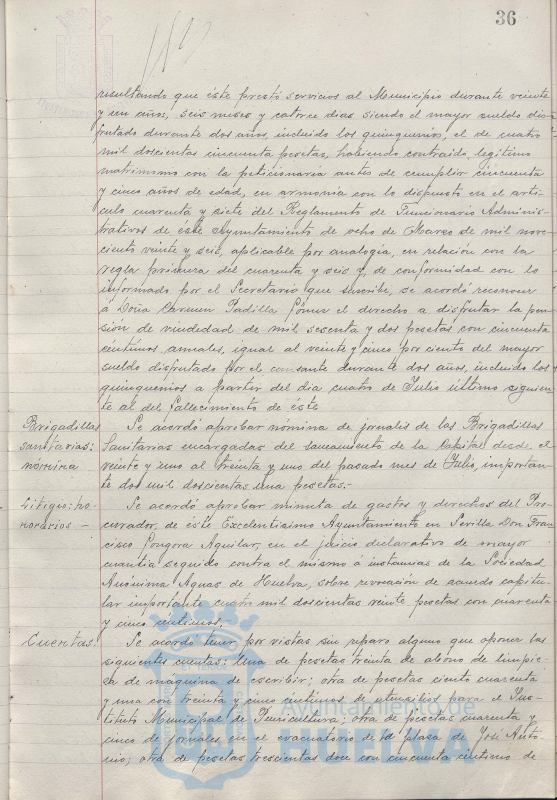 36
resultando que éste prestó servicios al Municipio durante veinte
y un años, seis meses y catorce dias siendo el mayor sueldo dis-
frutado durante dos años, incluido los quinquenios, el de cuatro
mil doscientas cincuenta pesetas, habiendo contraido legítimo
matrimonio con la peticionaria antes de cumplir cincuenta
y cinco años de edad, en armonía con lo dispuesto en el artí-
culo cuarenta y siete del Reglamento de Funcionario Adminis-
trativos de este Ayuntamiento de ocho de Marzo de mil nove-
ciento veinte y seis, aplicable por analogía, en relación con la
regla primera del cuarenta y seis y, de conformidad con lo
informado por el Secretario que suscribe, se acordó reconocer
á Doña Carmen Padilla Gómez el derecho a disfrutar la pen-
sión de viudedad de mil sesenta y dos pesetas con cincuenta
céntimos anuales, igual al veinte y cinco por ciento del mayor
sueldo disfrutado por el causante durante dos años, incluido los
quinquenios a partir del dia cuatro de Julio último siguien-
te al del fallecimiento de éste
Brigadillas sanitarias: nómina
Se acordó aprobar nómina de jornales de las Brigadillas
Sanitarias encargadas del saneamiento de la Capital desde el
veinte y uno al treinta y uno del pasado mes de Julio, importan-
te dos mil doscientas una pesetas.-
Litigio; ho-
norarios -
Se acordó aprobar minuta de gastos y derechos del Pro-
curador, de éste Excelentísimo Ayuntamiento en Sevilla Don Fran-
cisco Gongora Aguilar, en el juicio declarativo de mayor
cuantia seguido contra el mismo á instancias de la Sociedad
Anónima Aguas de Huelva, sobre revocación de acuerdo capitu-
lar importante cuatro mil doscientas veinte pesetas con cuarenta
y cinco céntimos.
Cuentas:
Se acordó tener por vistas sin reparo alguno que oponer las
siguientes cuentas: Una de pesetas treinta de abono de limpie-
za de máquina de escribir; otra de pesetas ciento cuarenta
y una con treinta y cinco centimos de utensilios para el Ins-
tituto Municipal de Puericultura; otra de pesetas cuarenta y
cinco de jornales en el evacuatorio de la plaza de José Anto-
nio; otra de pesetas trescientas doce con cincuenta centimo de
Ayuntamiento de
HUELVA